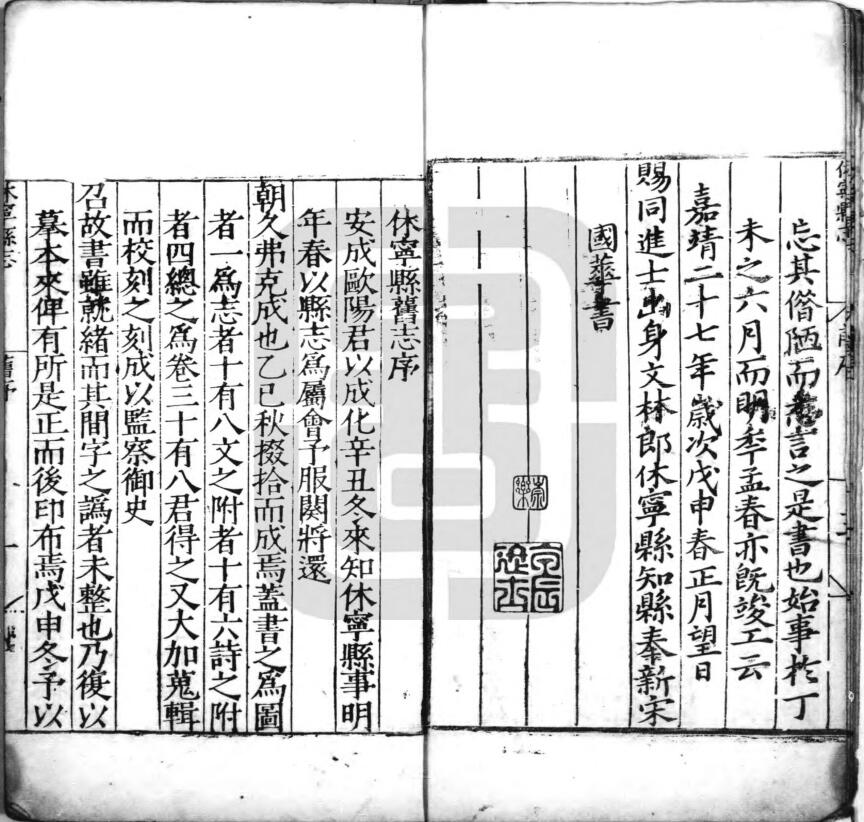 忘其僭陋而為言之是書也始事於丁
未之六月而明季孟春亦既竣工云
嘉靖二十七年歲次戊申春正月望日
賜同進士出身文林郎休寧縣知縣奉新宋
國華書
休寧縣舊志序
安成歐陽君以成化辛丑冬來知休寧縣事明
年春以縣志為屬會予服闋將還
朝久弗克成也乙巳秋掇拾而成焉蓋書之為圖
者一為志者十有八文之附者十有六詩之附
者四總之為卷三十有八君得之又大加蒐輯
而校刻之刻成以監察御史
召故書雖就緒而其間字之譌者未整也乃復以
摹本來俾有所是正而後印布焉戊申冬予以
休寧縣志
舊序
一